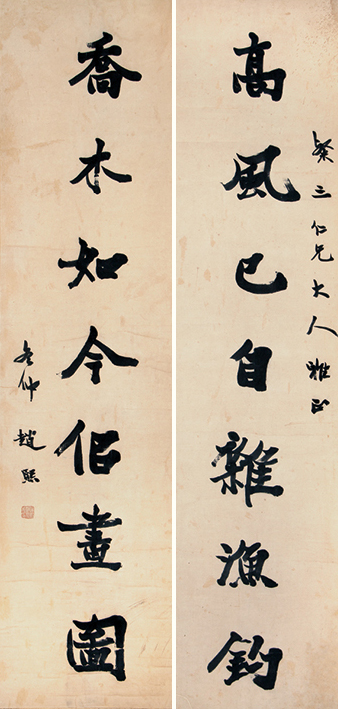 粲三仁兄大人雅正
高風已自雜漁釣
喬木如今佀畫圖
冬仲 趙熙